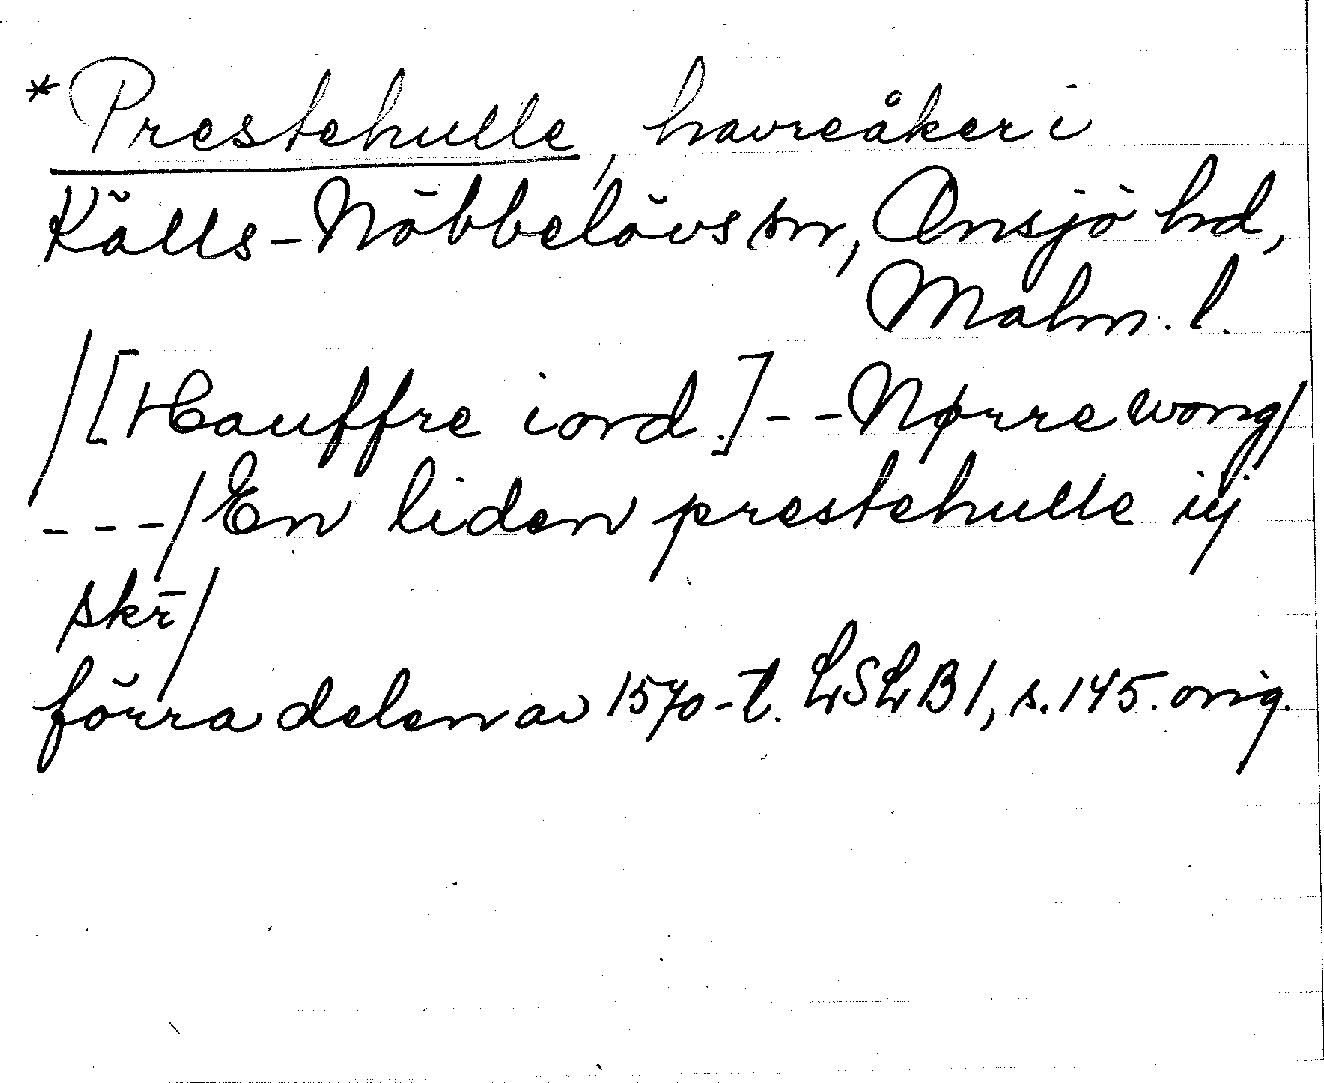 *Prestehulle, havreåker i
Källs-Nöbbelövs sn, Onsjö hd,
Malm. l.
/[Hauffre iord.]--Nørre wong/
---/En liden prestehulle iij
skr̄/
förra delen av 1570-t. LSLB 1, s. 145. orig.